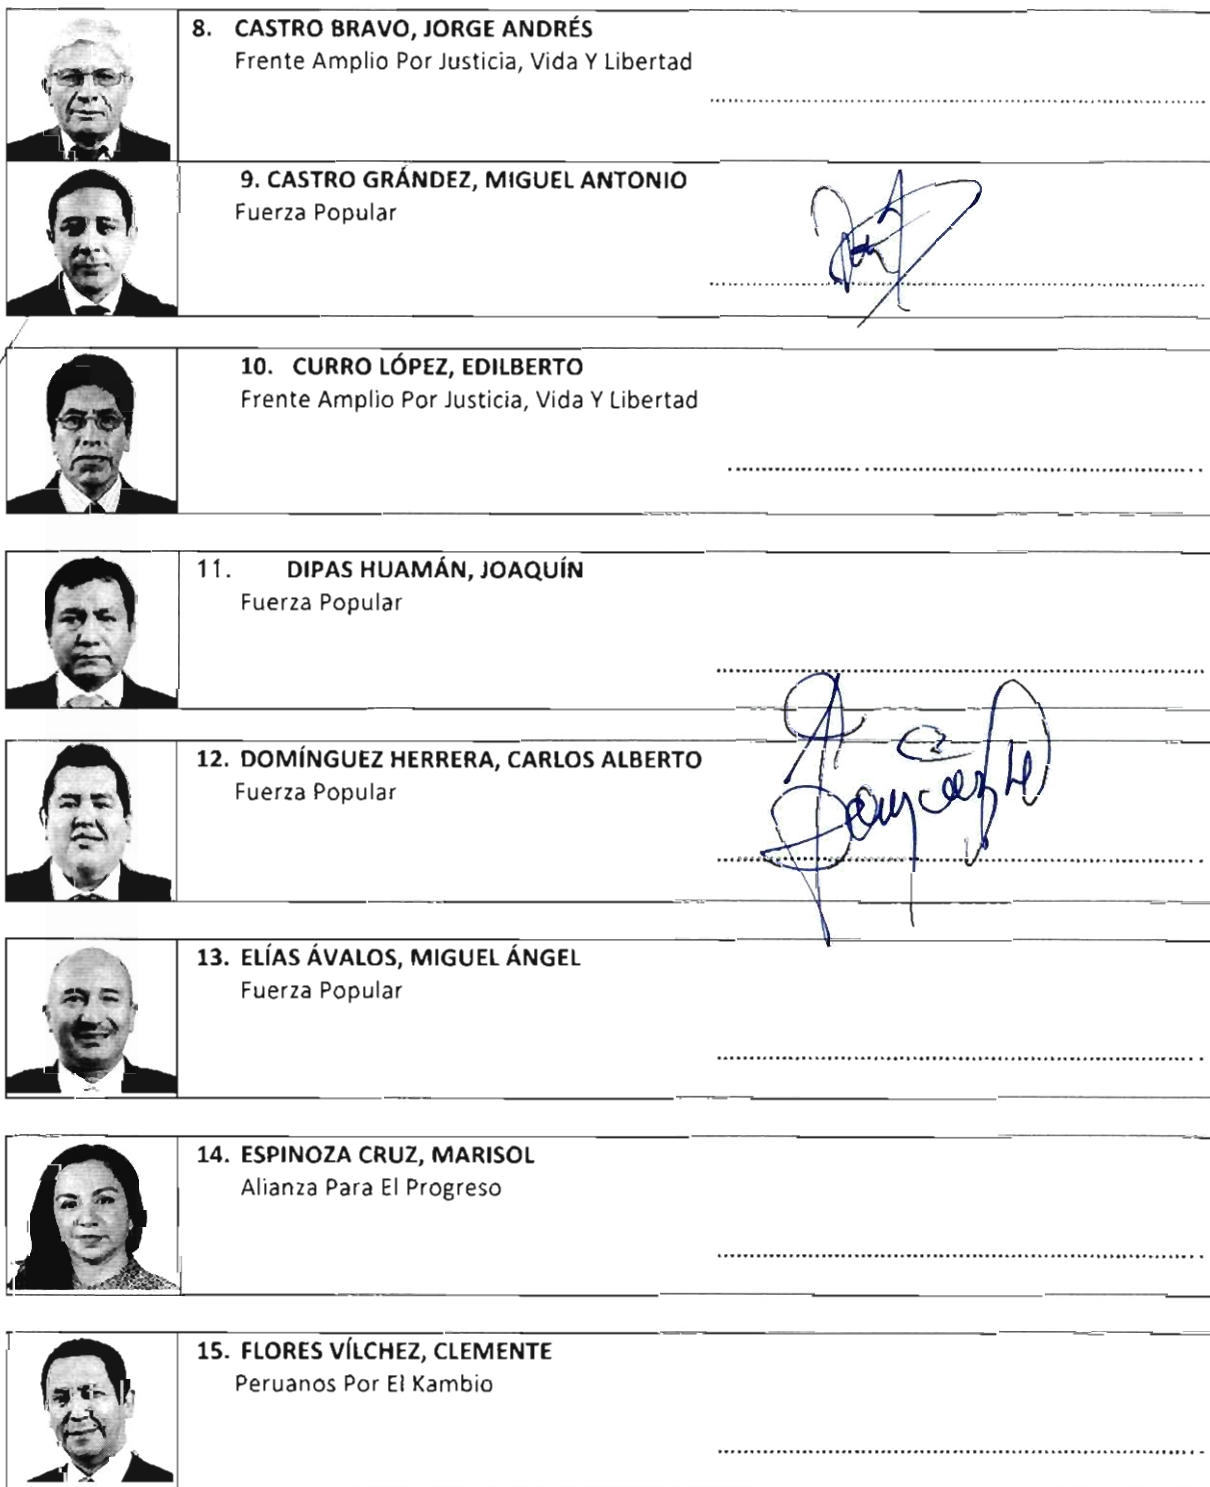 8. CASTRO BRAVO, JORGE ANDRÉS
Frente Amplio Por Justicia, Vida Y Libertad
9. CASTRO GRÁNDEZ, MIGUEL ANTONIO
Fuerza Popular
10. CURRO LÓPEZ, EDILBERTO
Frente Amplio Por Justicia, Vida Y Libertad
11. DIPAS HUAMÁN, JOAQUÍN
Fuerza Popular
12. DOMÍNGUEZ HERRERA, CARLOS ALBERTO
Fuerza Popular
13. ELÍAS ÁVALOS, MIGUEL ÁNGEL
Fuerza Popular
14. ESPINOZA CRUZ, MARISOL
Alianza Para El Progreso
15. FLORES VÍLCHEZ, CLEMENTE
Peruanos Por El Kambio